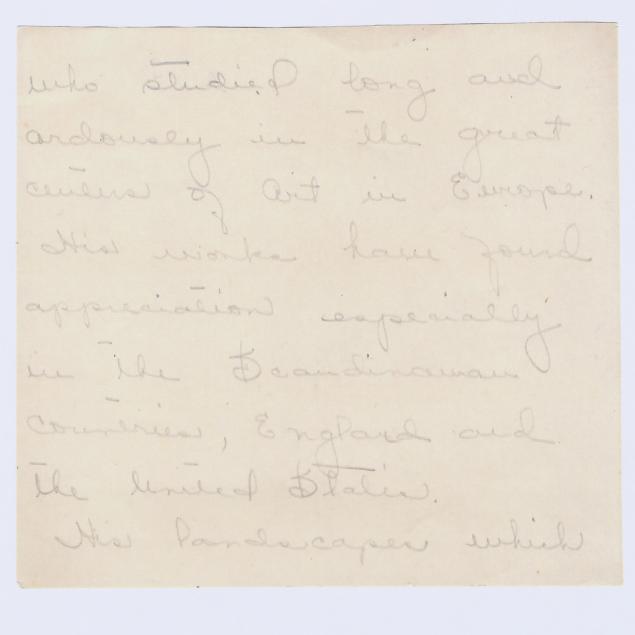 who studied long and
ardously in the great
centers of Art in Europe.
His works have found
appreciation especially
in the Scandinavian
countries, England and
the United States.
His landscapes which